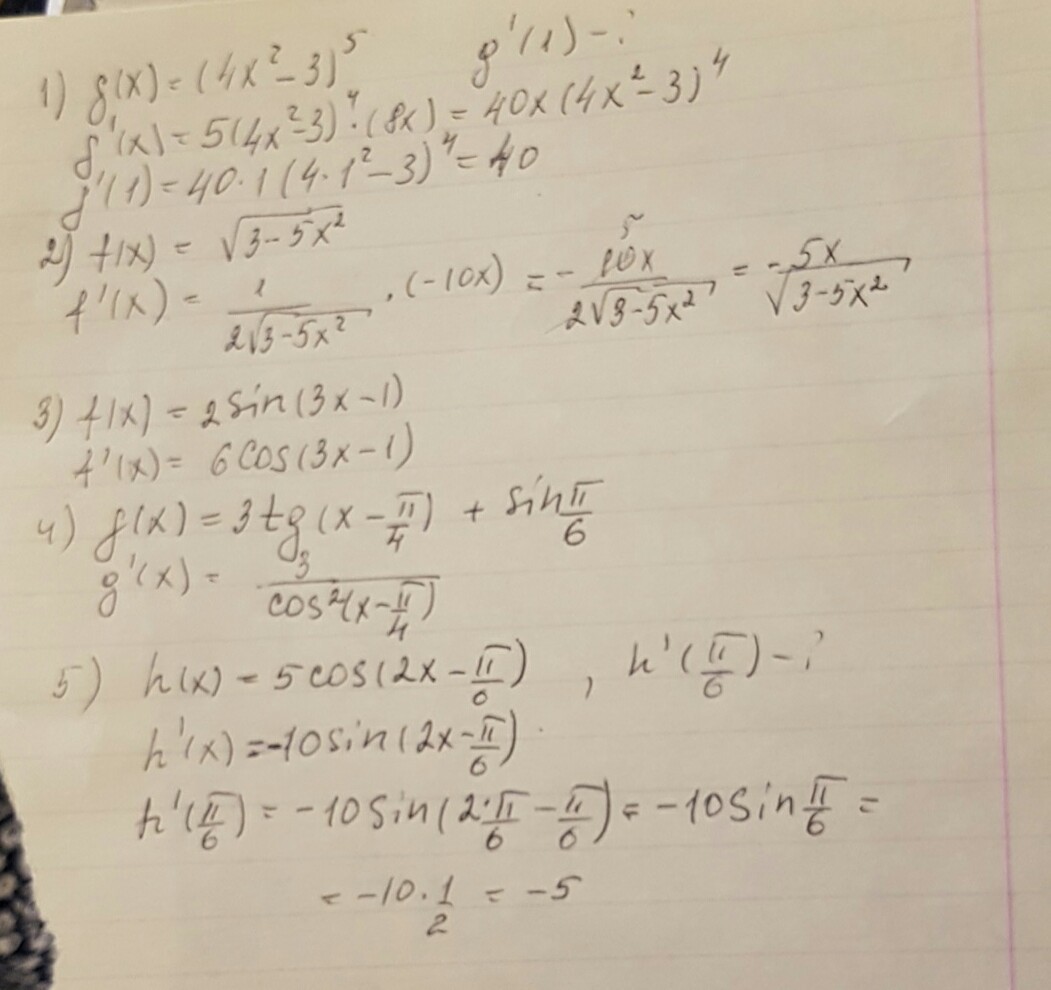 1) g(x) = (4x² - 3)⁵ g'(1) - ?
g'(x) = 5(4x² - 3)⁴ · (8x) = 40x (4x² - 3)⁴
g'(1) = 40 · 1 (4 · 1² - 3)⁴ = 40
2) f(x) = √(3 - 5x²)
f'(x) = 1/(2√(3 - 5x²)) · (-10x) = - 5 10x/(2√(3 - 5x²)) = - 5x/√(3 - 5x²)
3) f(x) = 2 sin (3x - 1)
f'(x) = 6 cos (3x - 1)
4) g(x) = 3 tg (x - π/4) + sin π/6
g'(x) = 3/(cos² (x - π/4))
5) h(x) = 5 cos (2x - π/6) , h' (π/6) - ?
h'(x) = -10 sin (2x - π/6)
h' (π/6) = -10 sin (2 · π/6 - π/6) = -10 sin π/6 =
= -10 · 1/2 = -5